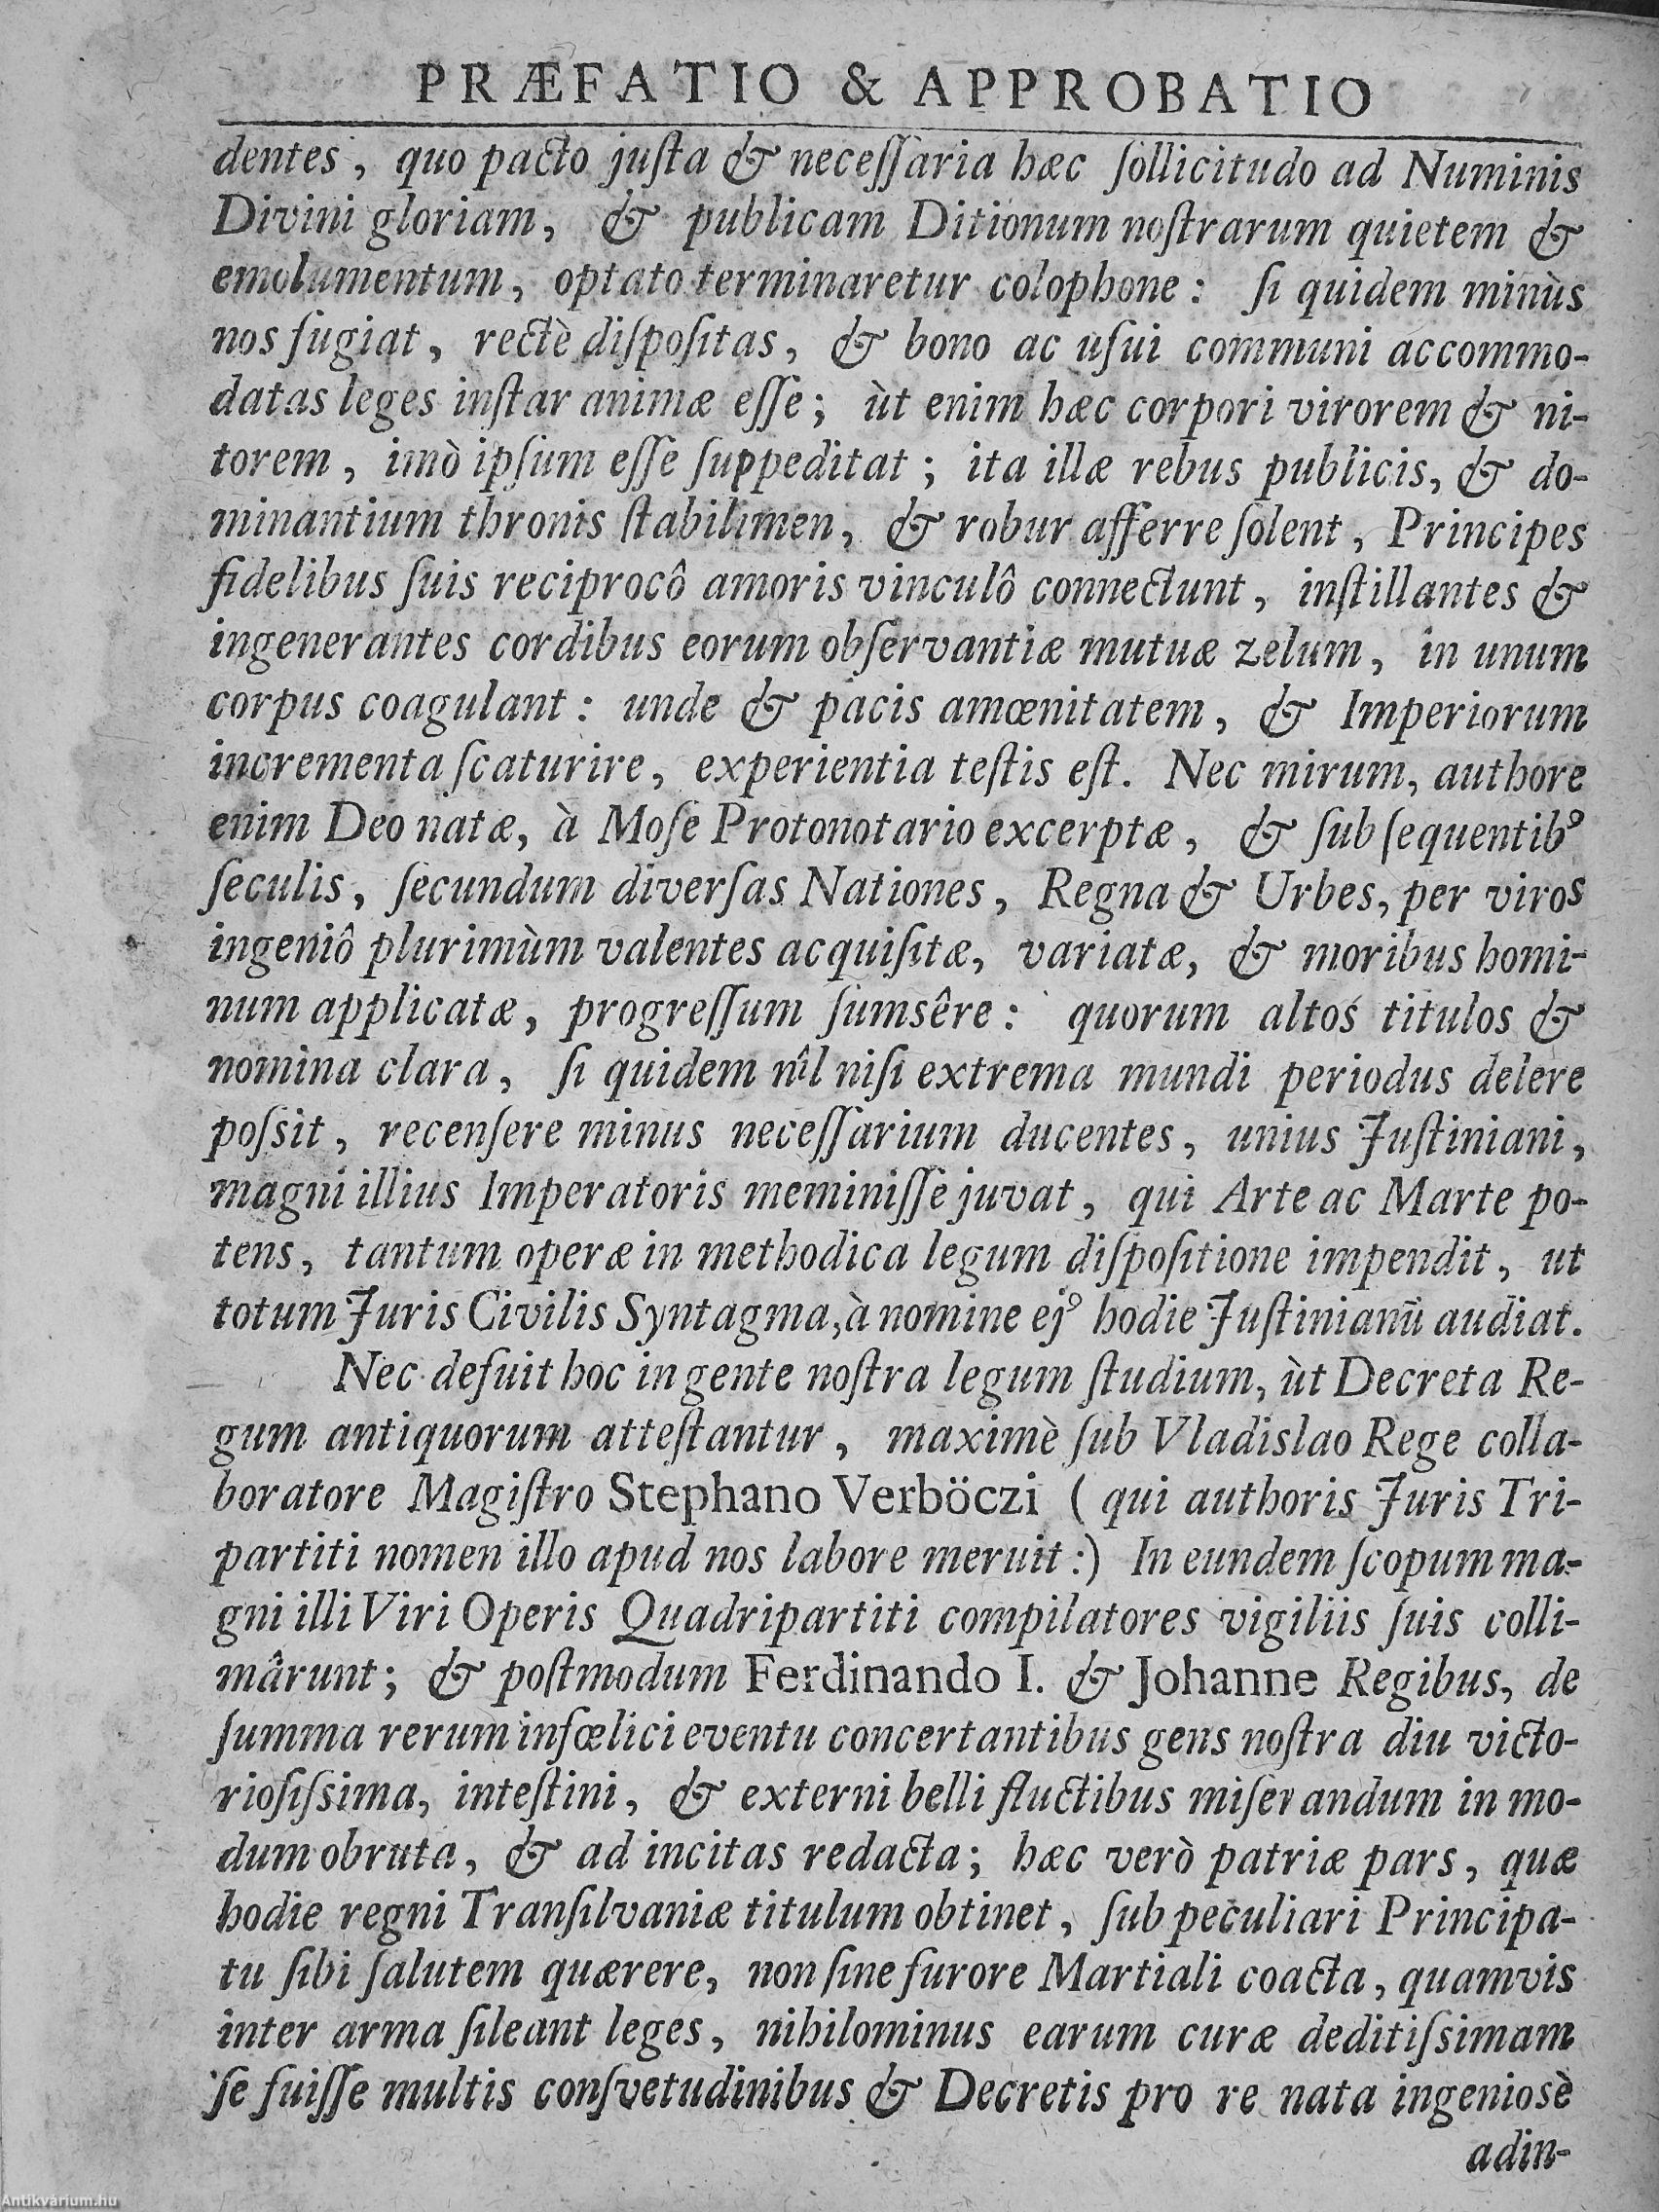 PRÆFATIO & APPROBATIO
dentes, quo pacto juſta & neceſſaria hæc ſollicitudo ad Numinis
Divini gloriam, & publicam Ditionum noſtrarum quietem &
emolumentum, optato terminaretur colophone: ſi quidem minùs
nos fugiat, rectè diſpoſitas, & bono ac uſui communi accommo-
datas leges inſtar animæ eſſe; ùt enim hæc corpori virorem & ni-
torem, imò ipſum eſſe ſuppeditat; ita illæ rebus publicis, & do-
minantium thronis ſtabilimen, & robur afferre ſolent, Principes
fidelibus ſuis reciprocô amoris vinculô connectunt, inſtillantes &
ingenerantes cordibus eorum obſervantiæ mutuæ zelum, in unum
corpus coagulant: unde & pacis amœnitatem, & Imperiorum
incrementa ſcaturire, experientia teſtis eſt. Nec mirum, authore
enim Deo natæ, à Moſe Protonotario excerptæ, & ſubſequentibꝰ
ſeculis, ſecundum diverſas Nationes, Regna & Urbes, per viros
ingeniô plurimùm valentes acquiſitæ, variatæ, & moribus homi-
num applicatæ, progreſſum ſumsêre: quorum altos titulos &
nomina clara, ſi quidem nîl niſi extrema mundi periodus delere
poſsit, recenſere minus neceſſarium ducentes, unius Juſtiniani,
magni illius Imperatoris meminiſſe juvat, qui Arte ac Marte po-
tens, tantum operæ in methodica legum diſpoſitione impendit, ut
totum Juris Civilis Syntagma, à nomine ejꝰ hodie Juſtinianū audiat.
Nec defuit hoc in gente noſtra legum ſtudium, ùt Decreta Re-
gum antiquorum atteſtantur, maximè ſub Vladislao Rege colla-
boratore Magiſtro Stephano Verböczi ( qui authoris Juris Tri-
partiti nomen illo apud nos labore meruit:) In eundem ſcopum ma-
gni illi Viri Operis Quadripartiti compilatores vigiliis ſuis colli-
mârunt; & poſtmodum Ferdinando I. & Johanne Regibus, de
ſumma rerum infœlici eventu concertantibus gens noſtra diu victo-
rioſiſsima, inteſtini, & externi belli fluctibus miſerandum in mo-
dum obruta, & ad incitas redacta; hæc verò patriæ pars, quæ
hodie regni Tranſilvaniæ titulum obtinet, ſub peculiari Principa-
tu ſibi ſalutem quærere, non ſine furore Martiali coacta, quamvis
inter arma ſileant leges, nihilominus earum curæ deditiſsimam
ſe fuiſſe multis conſvetudinibus & Decretis pro re nata ingeniosè
adin-
Antikvárium.hu